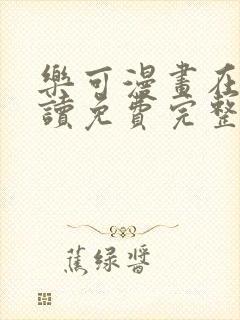 樂可漫畫在
讀免費完整
蕉绿醬